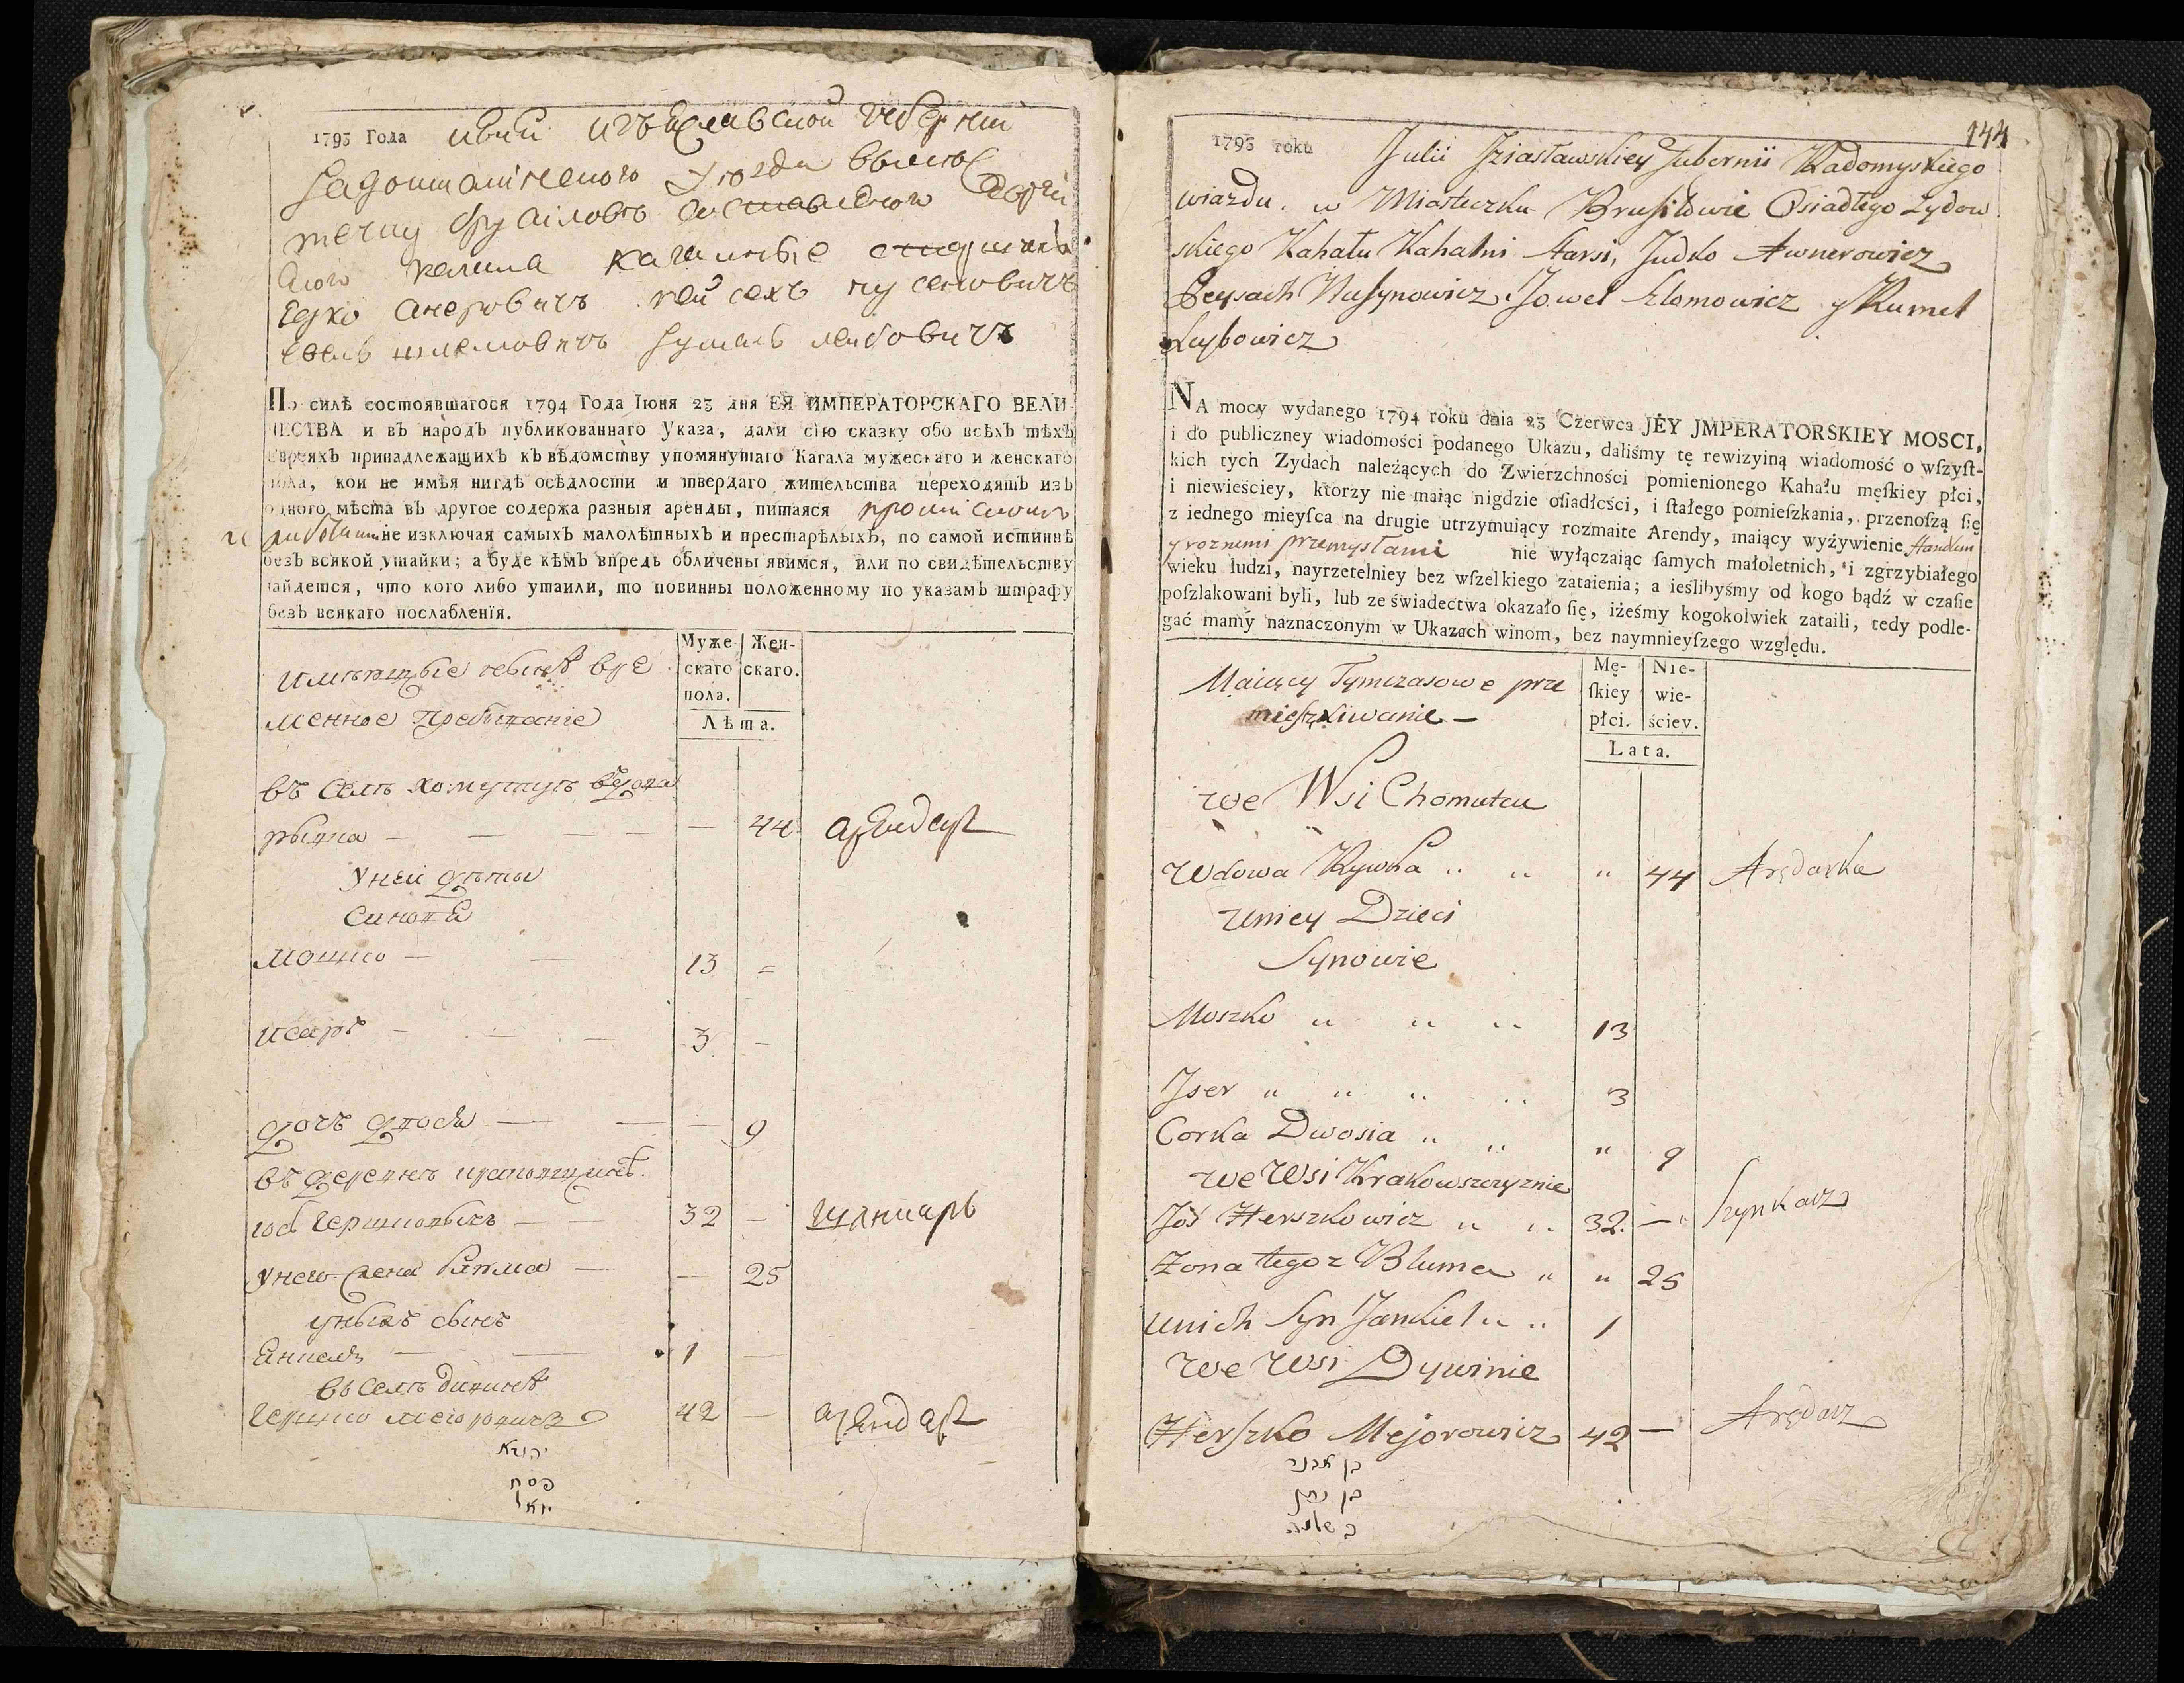 1795 Года Июля Изъяславской губернии
радомышлского уезда вымѣс
течку брусиловѣ
кагала кагалные
Юдко Анеровичъ пейсахъ нусеновичъ
Евель шлемовичъ румель лейбовичъ
По силѣ состоявшагося 1794 Года Іюня 23 дня ЕЯ ИМПЕРАТОРСКАГО ВЕЛИ-
ЧЕСТВА и въ народъ публикованнаго Указа, дали сію сказку обо всѣхъ тѣхъ
Евреяхъ принадлежащихъ къ вѣдомству упомянутаго Кагала мужескаго и женскаго
пола, кои не имѣя нигдѣ осѣдлости и твердаго жительства переходятъ изъ
одного мѣста въ другое содержа разныя аренды, питаяся промысломъ
не изключая самыхъ малолѣтныхъ и престарѣлыхъ, по самой истиннѣ
безъ всякой утайки; а буде кѣмъ впредь обличены явимся, или по свидѣтельству
найдется, что кого либо утаили, то повинны положенному по указамъ штрафу
безъ всякаго послабленія.
Муже скаго пола. Жен- скаго.
Лѣта.
имѣющые вре
менное пребиваніе
въ селѣ хомутцѣ вдова
рывка — — — — — 44 арендарь
У ней дѣты
синовѣ
Мошко — — 13 =
исаръ — — — 3 —
дочъ двося — — — 9
въ деревнѣ краковщинѣ
юсь Гершковичъ — — 32 — Шинкарь
У него жена блюма — — 25
унихъ сынъ
Янкель — — 1 —
въ селѣ дивинѣ
Гершко меюровичъ 42 — арендарь
יהודא
פסח
יואל
144
1795 roku Julii Jziasławskiey Jubernii Radomyskiego
wiazdu. w Miasteczku Brusiłowie Osiadłego Zydow
skiego Kahału Kahalni starsi, Judko Awnerowicz
Peysach Nusynowicz. Jowel Szlomowicz y Rumel
Leybowicz
NA mocy wydanego 1794 roku dnia 23 Czerwca JEY JMPERATORSKIEY MOSCI,
i do publiczney wiadomości podanego Ukazu, daliśmy tę rewizyiną wiadomość o wſzyſt-
kich tych Zydach należących do Zwierzchności pomienionego Kahału męſkiey płci,
i niewieściey, ktorzy nie maiąc nigdzie oſiadłości, i ſtałego pomieſzkania, przenoſzą ſię
z iednego mieyſca na drugie utrzymuiący rozmaite Arendy, maiący wyżywienie Handlem
y roznemi przemysłami nie wyłączaiąc ſamych małoletnich, i zgrzybiałego
wieku ludzi, nayrzetelniey bez wſzelkiego zataienia; a ieślibyśmy od kogo bądź w czaſie
poſzlakowani byli, lub ze świadectwa okazało ſię, iżeśmy kogokolwiek zataili, tedy podle-
gać mamy naznaczonym w Ukazach winom, bez naymnieyſzego względu.
Mę- ſkiey płci. Nie- wie- ściey.
Lata.
Maiący Tymczasowe prze
mieszkiwanie —
we Wsi Chomutcu
Wdowa Rywka „ „ „ 44 Arędarka
Uniey Dzieci
Synowie
Moszko „ „ „ 13
Jser „ „ „ „ 3
Corka Dwosia „ „ „ 9
we Wsi Krakowszczyznie
Joś Herszkowicz „ „ 32. — Szynkarz
Zona tegoz Bluma „ „ 25
Unich Syn Jankiel „ „ 1
We Wsi Dywinie
Herszko Mejorowicz 42 — Arędarz
בן אבנר
בן נתן
ב שלמה